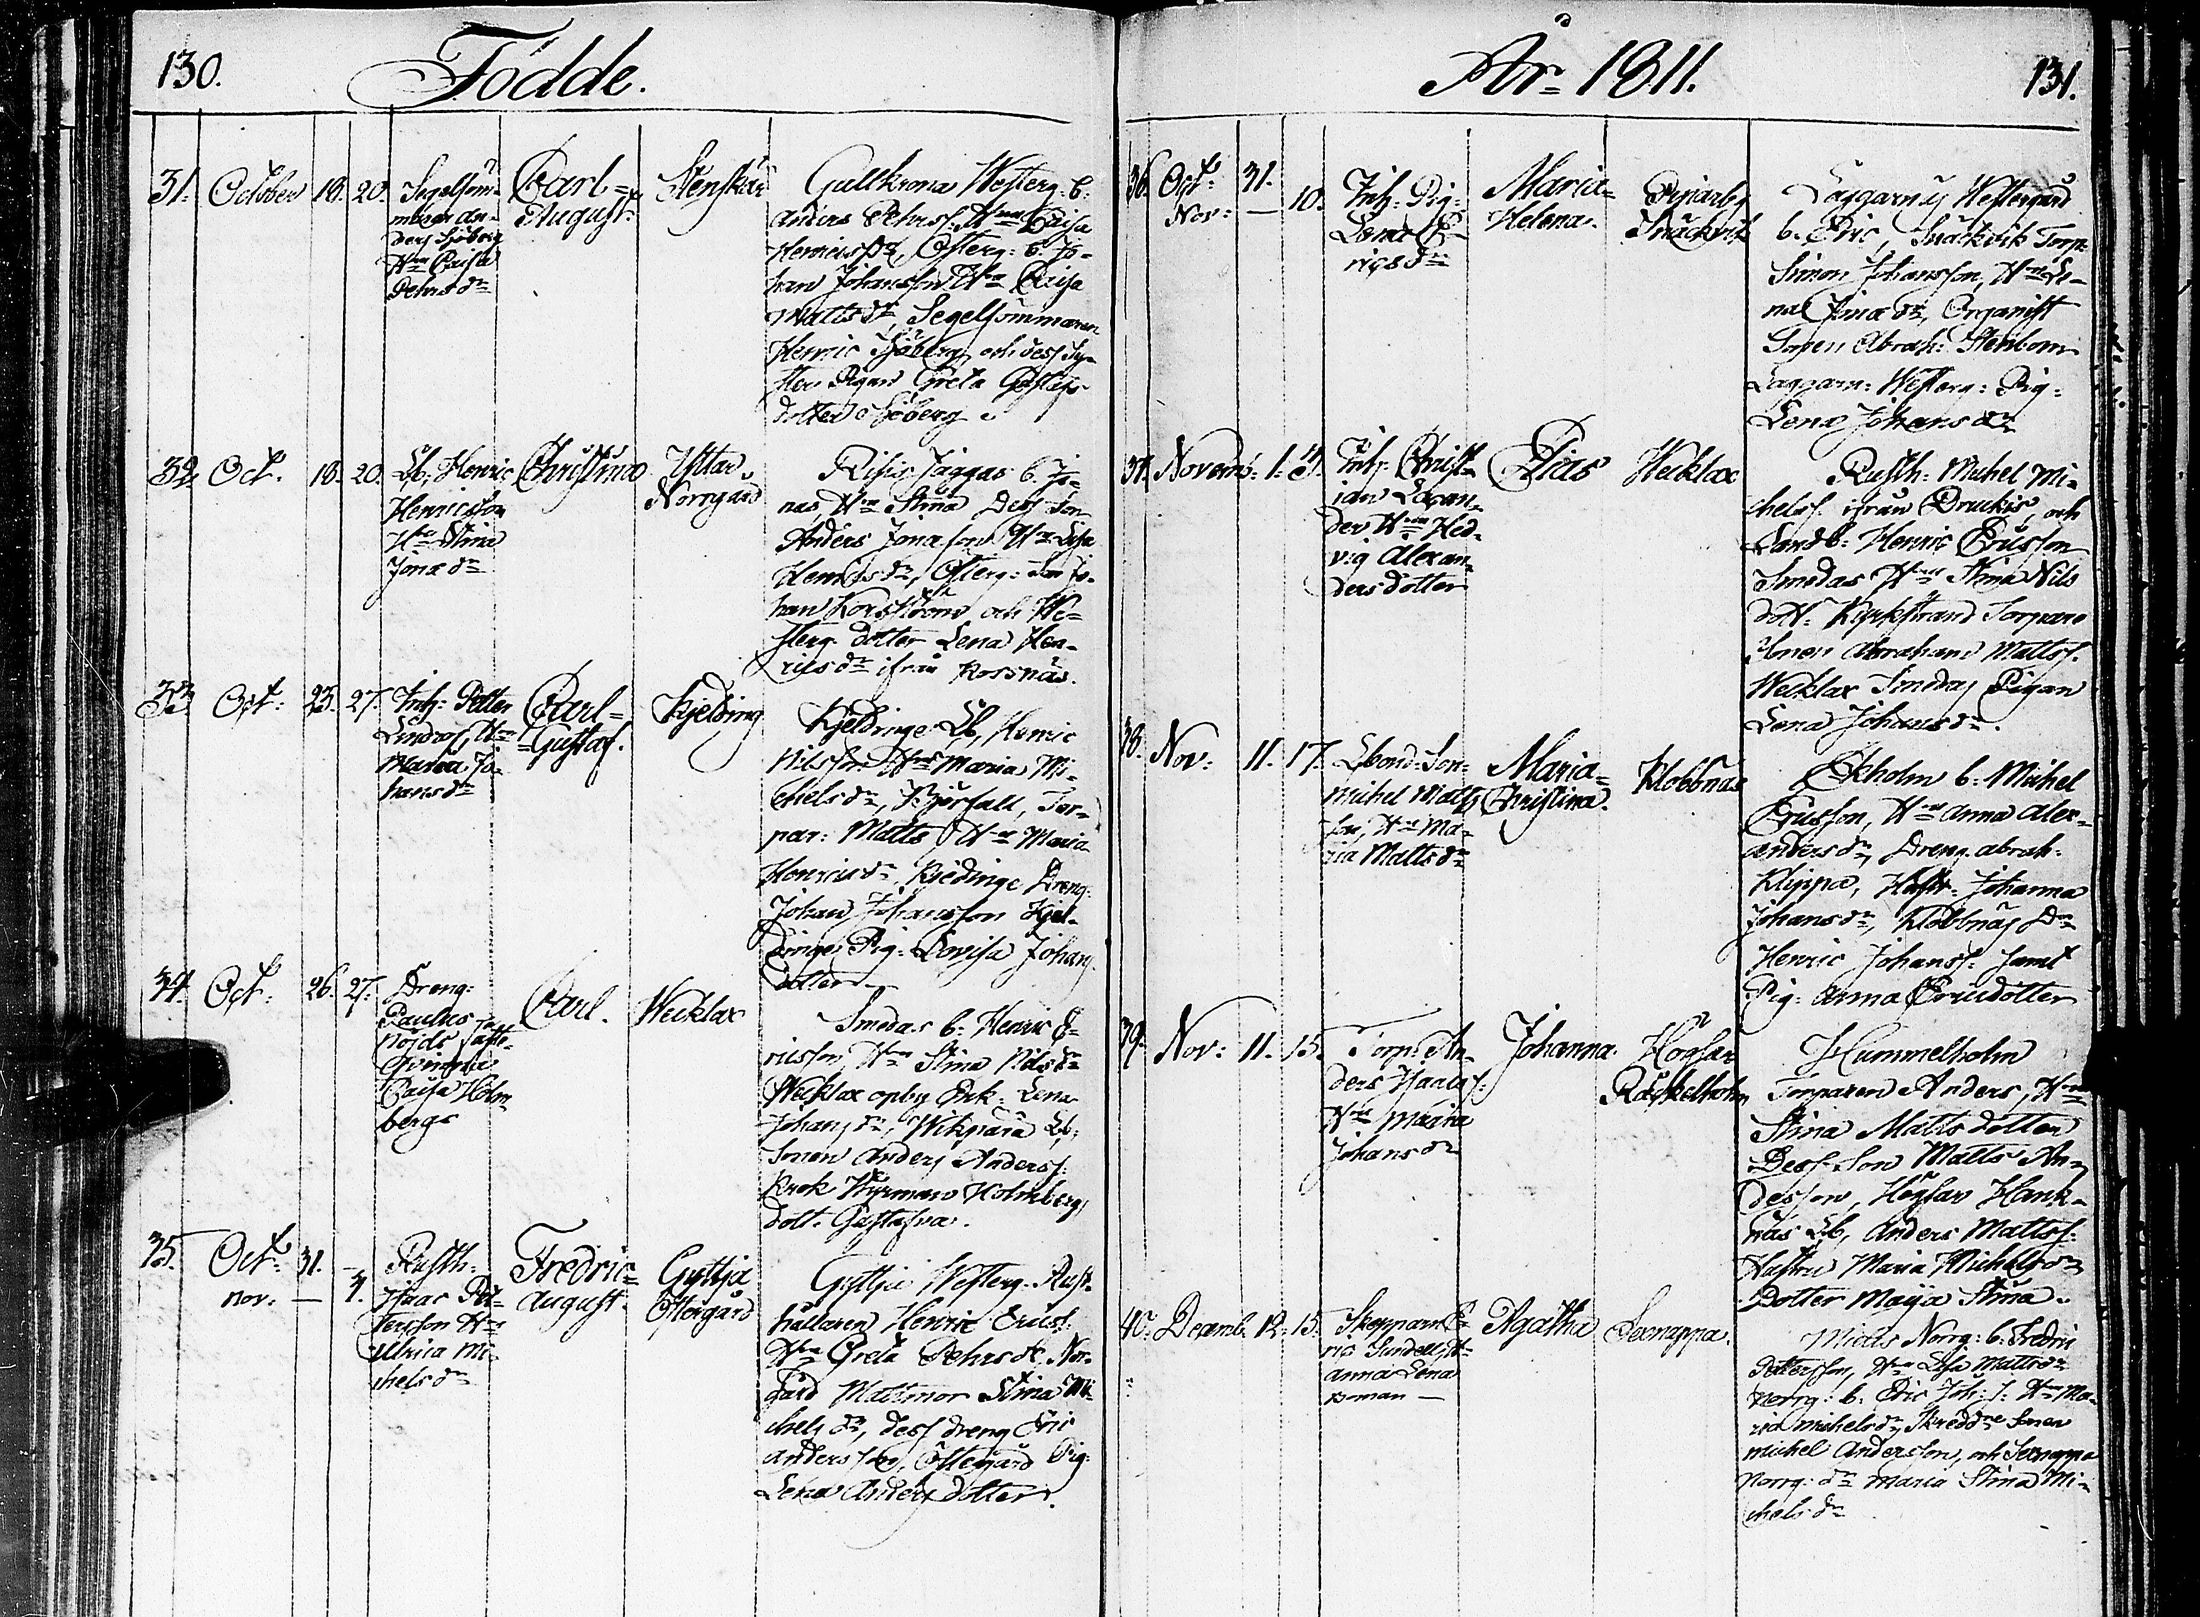 130. Födde.
31. October 18. 20. Segelsöm-
maren An-
ders Sjöberg
Hru Caisa
Pehrs dr
Carl=
August.
Stenskär
Gullkrona Westerg: b:
Anders Pehrss: Hru Caisa
Henricsdr, Österg: b. Jo-
han Johansson Hru Caisa
Matts dr, Segelsömmaren
Henric Sjöberg, och dess Sy-
ster Pigan Greta Gustafs
dotter Sjöberg.
32. Oct. 18. 20. Lb, Henric
Henricsson
Hru Stina
Jonæ dr
Christina
Norrgård
Jäggas b. Jo-
nas Hru Stina Dess Son
Anders Jonasson Hru Lisa
Henricsdr, Österg: Jo-
han Korsström och We-
sterg. dotter Lena Hen-
rics dr ifrån Korsnäs.
33. Oct: 23. 27. Inh: Petter
Lindros, Hru
Maria Jo-
hans dr
Carl=
=Gustaf.
Kjelding
Kjeldinge Lb, Henric
Nilsson Hru Maria Mi-
chels dr, Tor-
par: Matts Hru Maria
Henricsdr, Kjedinge Dreng:
Johan Johansson Kjel-
dinge Pig: Lovisa Johans
dotter.
34. Oct: 26. 27. Dreng:
Paulus
Nöjds
Qvinna
Caisa Holm-
berg
Carl.
Wecklax
Smedas b: Henric E-
ricsson Hru Stina Nils dr
Wecklax opby Enk: Lena
Johans dr, Lb,
Sonen Anders Anderss:
Holmbergs
dott. Gustafva.
35. Oct: 31.
Nov: — 4.
Rusth:
Isaac Pet-
tersson Hru
Ulrica Mi-
chels dr
Fredric=
August.
Gyttja
Östergård
Gyttja Westerg. Rust-
hållaren Henric Ericss:
Hru Greta Pehrs dr. Nor-
gård Mattmor Stina Mi-
chels dr, dess dreng Eric
Andersson, Östegård Pig:
Lena Anders dotter.
År 1811. 131.
36. Oct: 31.
Nov: — 10.
Inh: Pig:
Lena E-
rics dr
Maria=
Helena.
Snäckvik
Laggarnäs Westergård
b. Eric, Snäckvik Torp:
Simon Johansson, Hru Le-
na Jonæ dr, Organist
Sonen Abrah: Stenbom
Laggarn: Westerg: Pig:
Lena Johans dr
37. Novemb: 1. 3. Inh: Christ-
ian Lagan-
der Hru Hed-
vig Alexan-
ders dotter
Elias
Wecklax
Rusth: Michel Mi-
chelss. ifrån Druckis, och
Landb: Henric Ericsson
Smedas Hru Stina Nils
dott: Kyrkstrand Torpare
Sonen Abraham Mattss.
Wecklax Smedas Pigan
Lena Johans dr.
38. Nov: 11. 17. Lbond: Son
Michel Matts
son, Hru Ma-
ria Matts dr
Maria=
Christina.
Klobbnäs
Ekholm b. Michel
Ericsson, Hru Anna Alex-
anders dr, Dreng. Abrah:
Klippa, Hustr: Johanna
Johans dr, Klobbnäs Dr
Henric Johanss: samt
Pig: Anna Ericsdotter
39. Nov: 11. 15. Torp: An-
ders Isaacss:
Hru Maria
Johans dr
Johanna.
Högsar
Räckelholm
Hummelholm
Torparen Anders, Hru
Stina Matts dotter
Dess Son Matts An-
desson, Högsar Hank-
näs Lb, Anders Mattss:
Hustru Maria Michels dr
Dotter Maija Stina.
40. Decemb. 12. 15. Skepparn E-
ric Sundell, H-
Anna Lena
Boman —
Agatha
Lexnappa.
Mielis Norrg: b. Fredric
Pettersson, Hru Lisa Matts dr
Norrg: b. Eric Joh: s: Hru Ma-
ria Michels dr, Sonen
Michel Andersson, och Lexnappa
Norrg: dr Maria Stina Mi-
chels dr